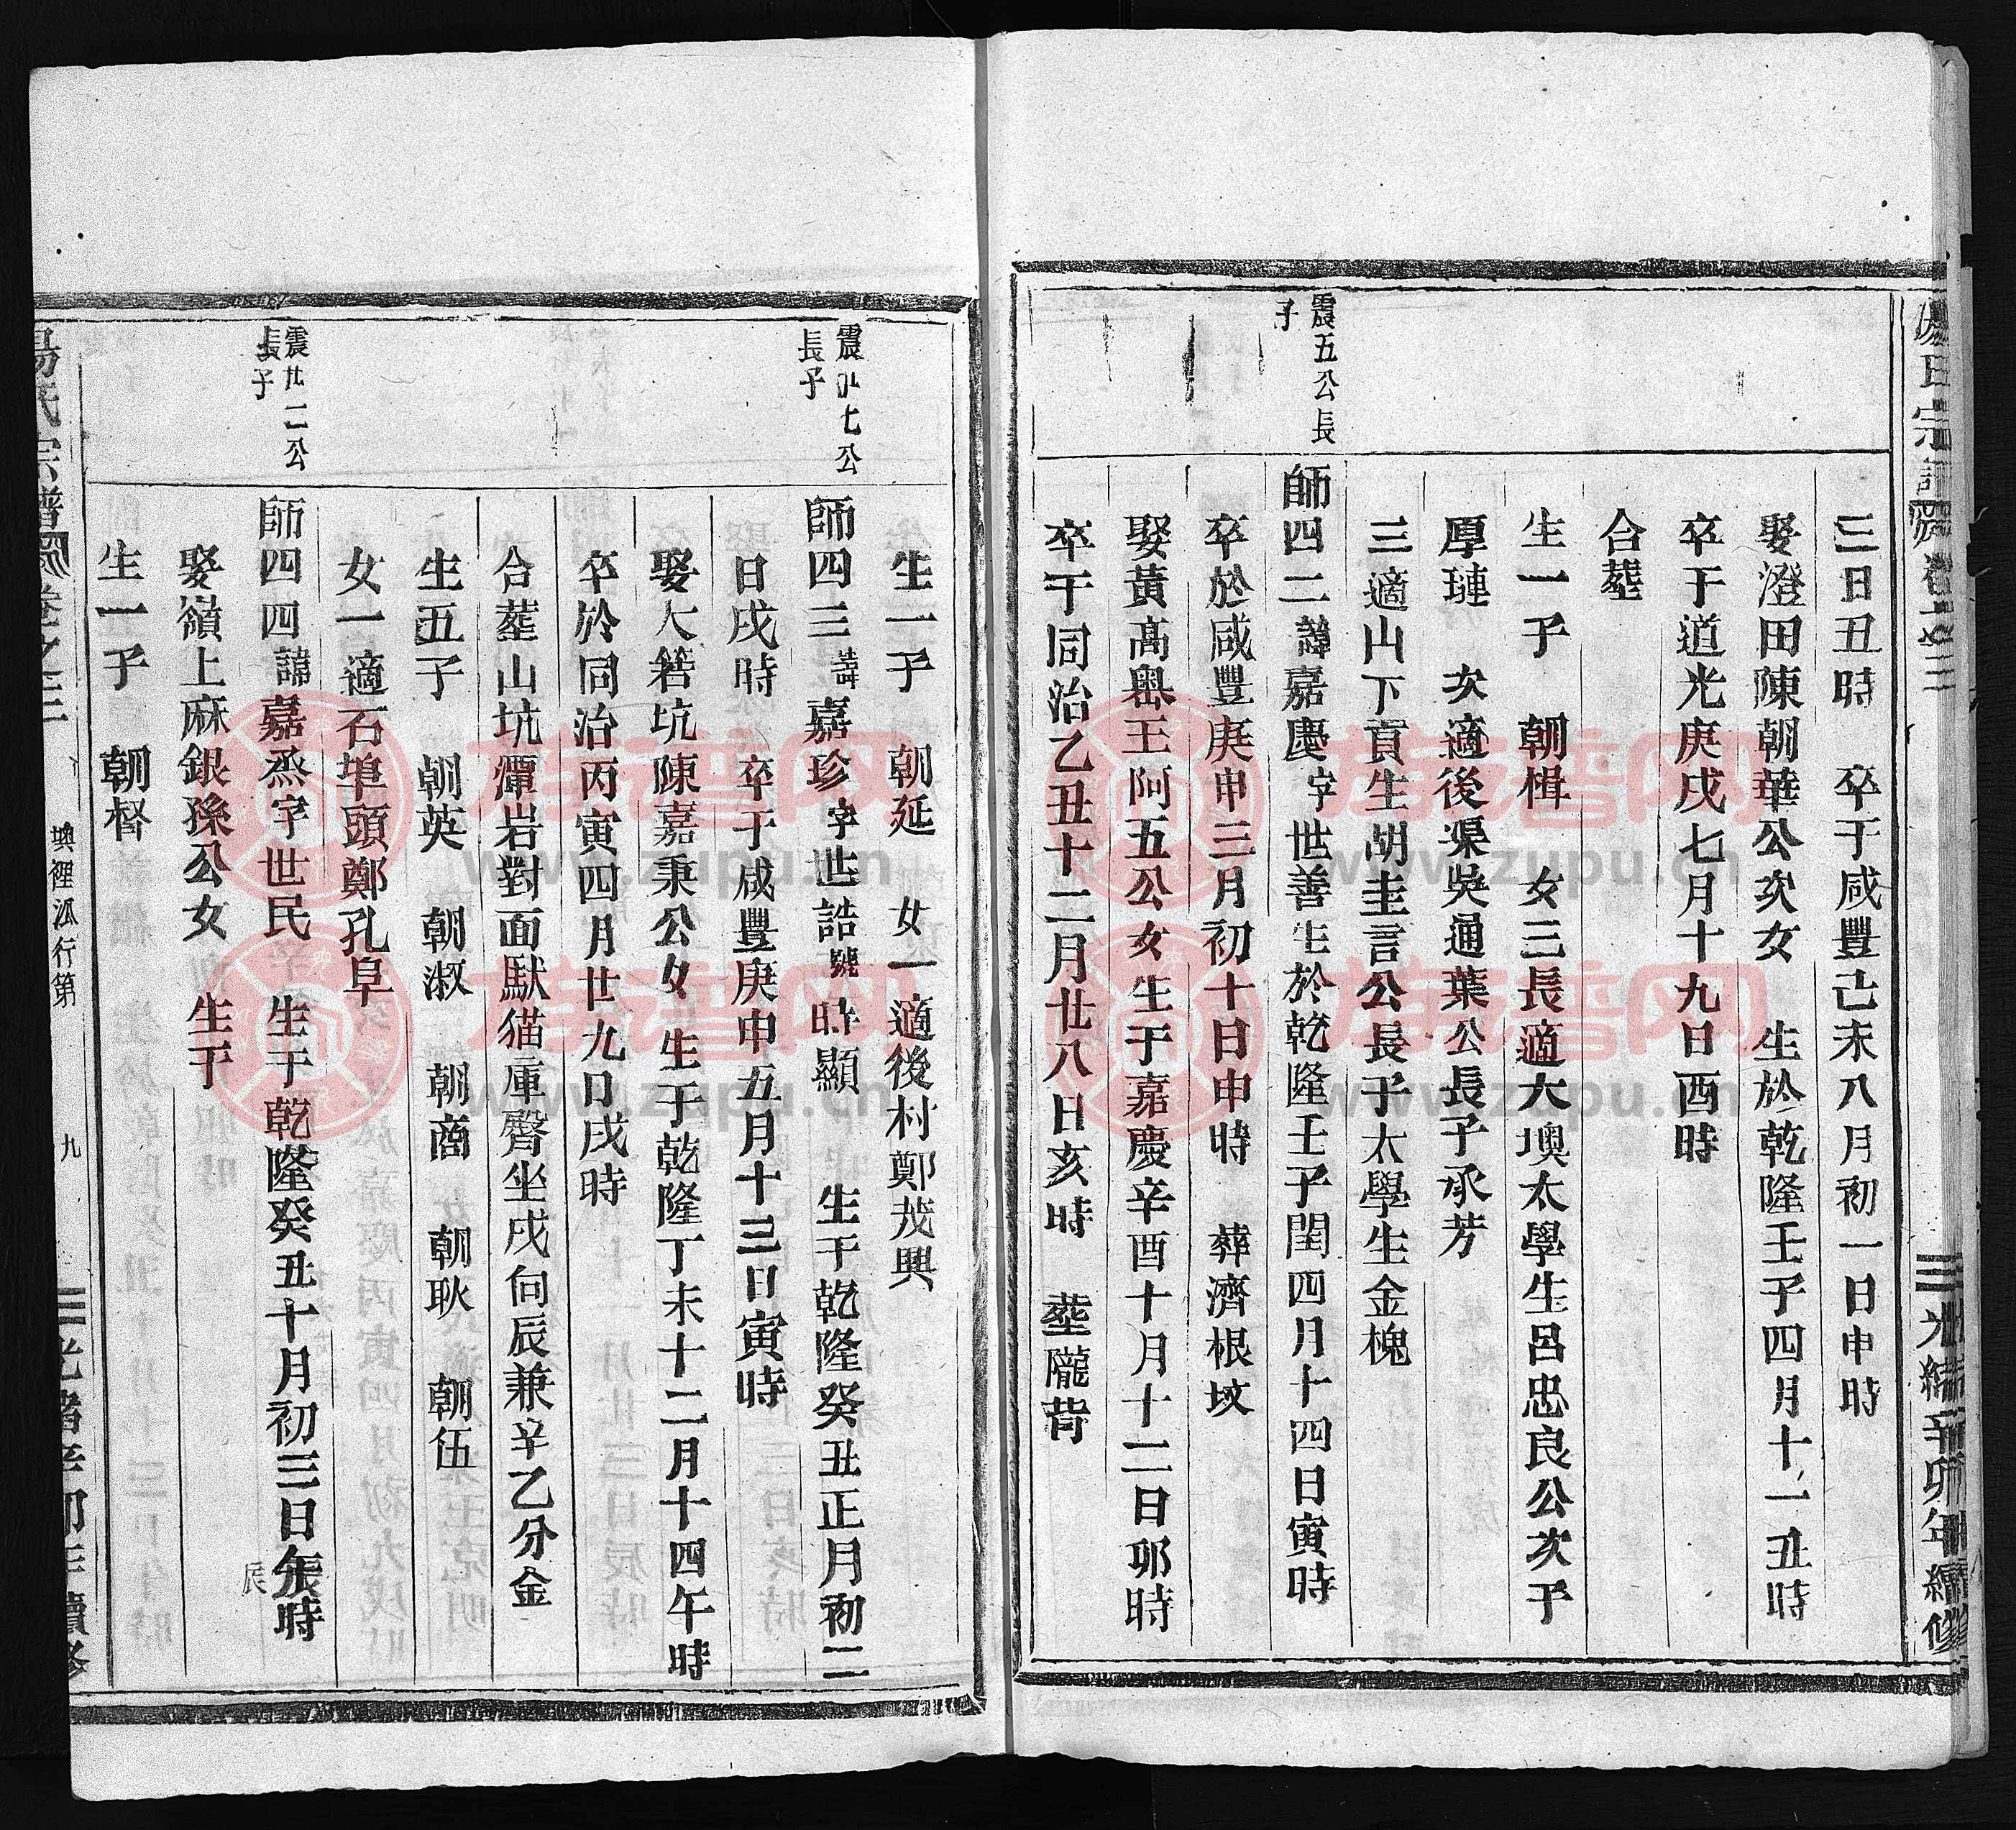 三日丑時　卒于咸豐己未八月初一日申時
娶澄田陳朝華公次女　生於乾隆壬子四月十一丑時
卒于道光庚戌七月十九日酉時
合塟
生一子　朝楫　女三長適大墺太學生呂忠良公次子
厚璉　次適後渠吳通葉公長子承芳
三適山下貢生胡圭言公長子太學生金槐
震五公長
子
師四二諱嘉慶字世善生於乾隆壬子閏四月十四日寅時
卒於咸豐庚申三月初十日申時　葬濟根坟
娶黃高嶴王阿五公女生于嘉慶辛酉十月十二日卯時
卒于同治乙丑十二月廿八日亥時　塟隴背
生一子　朝延　女一適後村鄭茂興
震廿七公
長子
師四三諱嘉珍字世誥號時顯　生于乾隆癸丑正月初二
日戌時　卒于咸豐庚申五月十三日寅時
娶大箬坑陳嘉秉公女生于乾隆丁未十二月十四午時
卒於同治丙寅四月廿九日戌時
合塟山坑潭岩對面獃猫庫臀坐戌向辰兼辛乙分金
生五子　朝英　朝淑　朝商　朝耿　朝伍
女一適石埠頭鄭孔阜
震廿二公
長子
師四四諱嘉烝字世民　生于乾隆癸丑十月初三日辰時
辰
娶嶺上麻銀孫公女　生于
生一子　朝督
楊氏宗譜　卷之三　墺裡派行第　九　光緒辛卯年續修
族谱网
www.zupu.cn